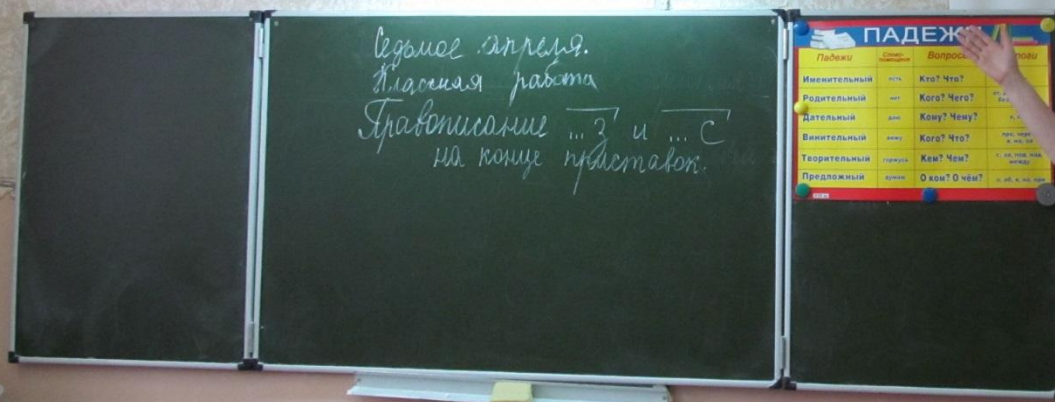 Седьмое апреля.
Классная работа
Правописание ...з и ...с
на конце приставок.
ПАДЕЖИ
Падежи Слово-помощник Вопросы
Именительный есть Кто? Что?
Родительный нет Кого? Чего?
Дательный даю Кому? Чему?
Винительный вижу Кого? Что?
Творительный горжусь Кем? Чем? с, за, под, над, между
Предложный думаю О ком? О чём? о, об, в, на, при